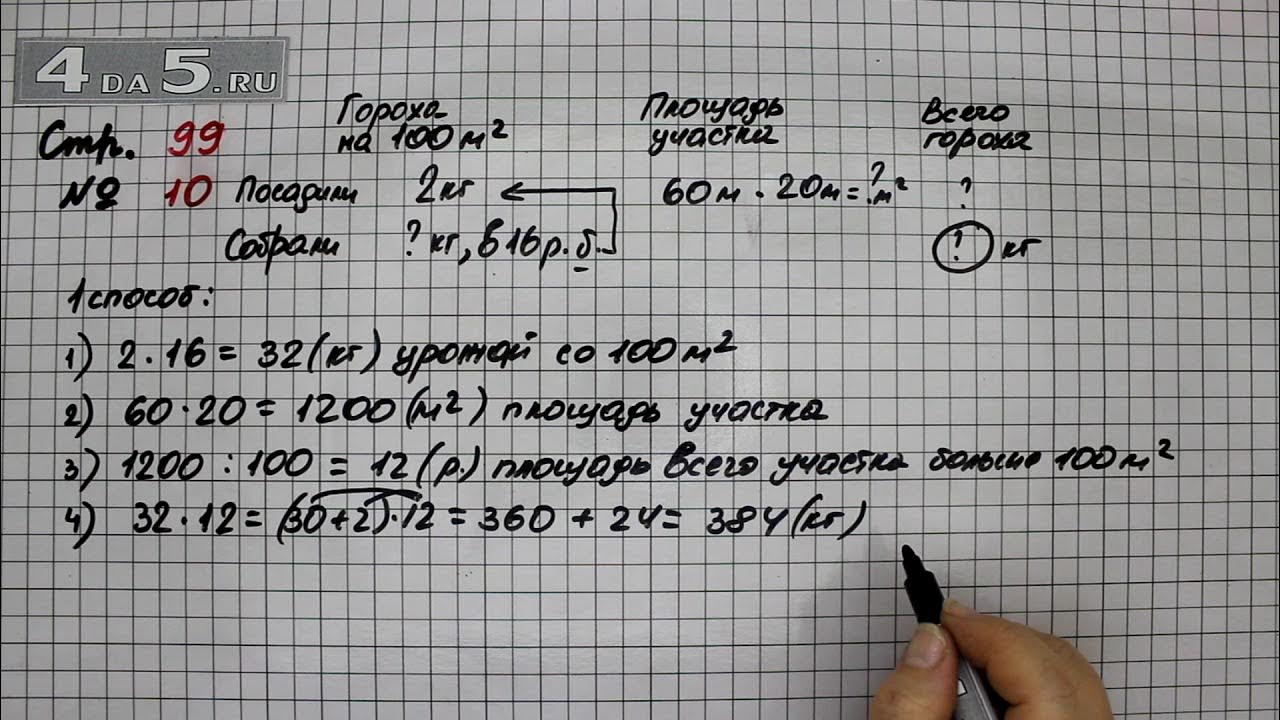 4DA5.RU
Гороха на 100 м² Площадь участка Всего гороха
Стр. 99
№ 10 Посадили 2 кг 60м · 20м = ? м² ?
Собрали ? кг, в 16 р. б. ? кг
1 способ:
1) 2 · 16 = 32 (кг) урожай со 100 м²
2) 60 · 20 = 1200 (м²) площадь участка
3) 1200 : 100 = 12 (р.) площадь всего участка больше 100 м²
4) 32 · 12 = (30+2) · 12 = 360 + 24 = 384 (кг)